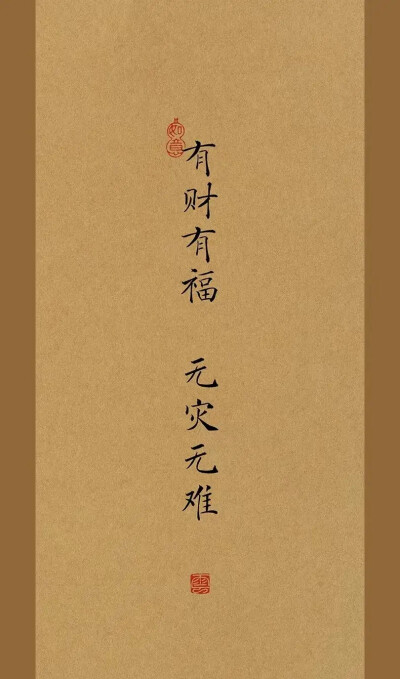 如意
有财有福 无灾无难